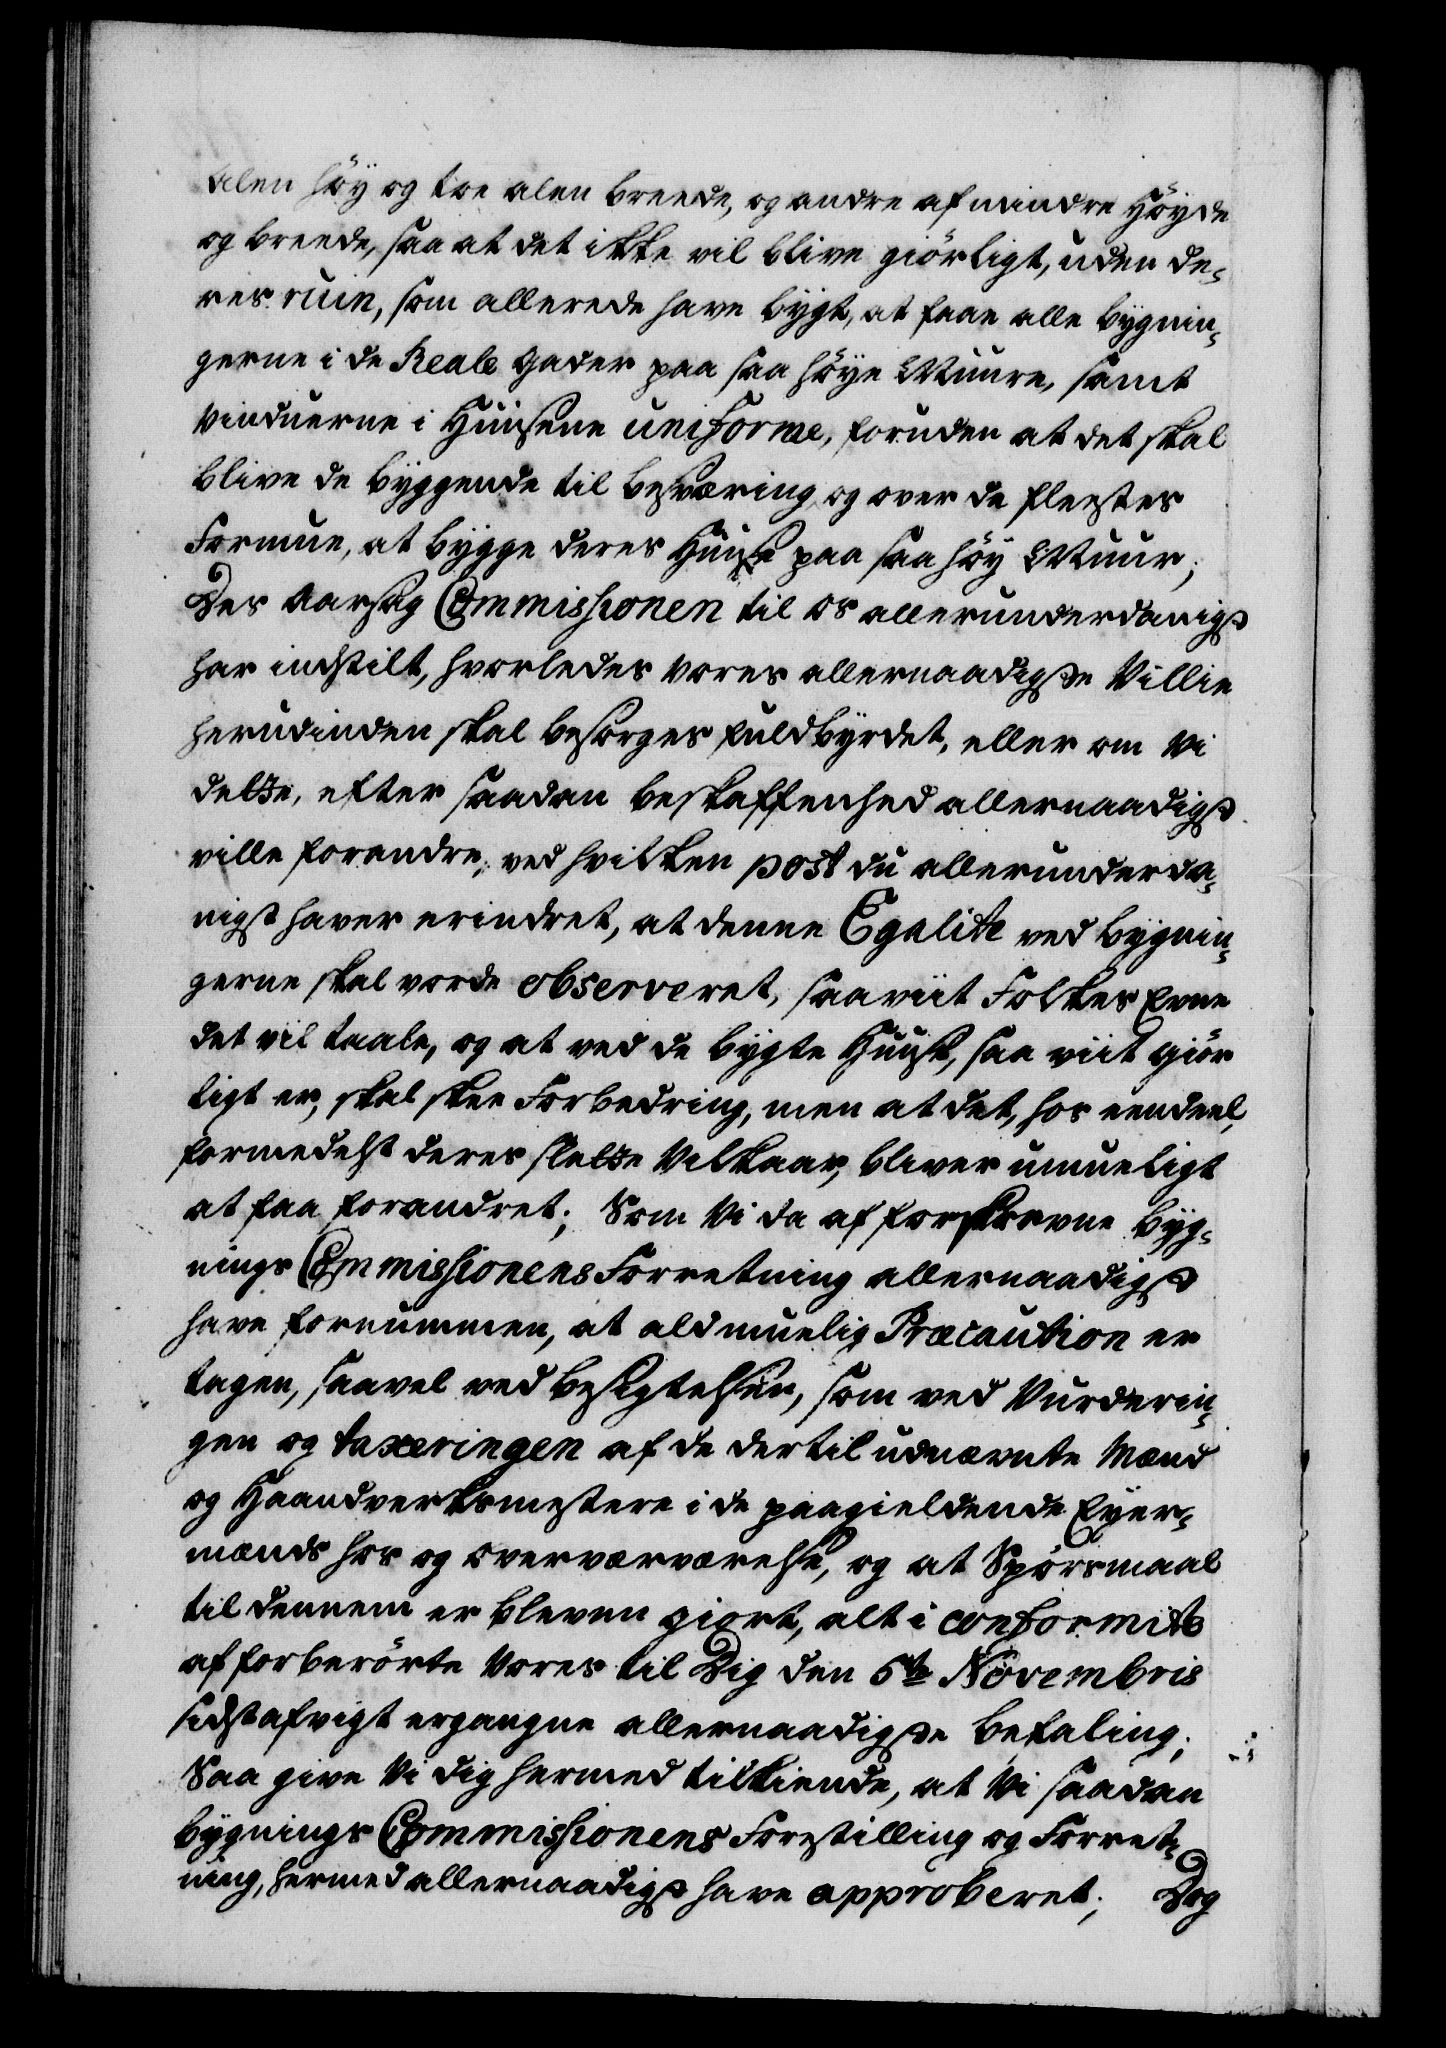 alen höy og tre alen breede, og andre af mindre Höyde
og breede, saa at det ikke vil blive giörligt, uden de-
res ruin, som allerede have bygt, at faae alle bygnin-
gerne i de Reale Gader paa saa höye Muure, samt
Vinduerne i Huusene uniforme, foruden at det skal
blive de byggende til besværing og over de fleestes
Formue, at bygge deres Huuse paa saa höy Muur;
Des Aarsag Commissionen til os allerunderdanigst
har indstilt, hvorledes vores allernaadigste Villie
herudinden skal besørges fuldbyrdet, eller om Vi
dette, efter saadan beskaffenhed allernaadigst
ville forandre, ved hvilken post du allerunderda-
nigst haver erindret, at denne Egalite ved bygnin-
gerne skal vorde observeret, saa viit Folkes Evne
det vil taale, og at ved de bygte Huuse, saa viit giör
ligt er, skal skee Forbedring, men at det, hos eendeel,
formedelst deres slette Vilkaar, bliver umueligt
at faa forandret; Som Vi da af forskrevne byg-
nings Commissionens Forretning allernaadigst
have fornummen, at ald muelig Præcaution er
tagen, saavel ved besigtelsen, som ved Vurderin-
gen og taxeringen af de dertil udnævnte Mænd
og Haandverksmestere i de paagieldende Eyer-
mænds hos og overværværelse, og at Spörsmaal
til dennem er bleven giort, alt i conformite
af forberörte Vores til Dig den 6te Novembris
sidstafvigt ergangne allernaadigste befaling;
Saa give Vi dig hermed tilkiende, at Vi saadan
bygnings Commissionens Forestilling og Forret-
ning, hermed allernaadigst have approberet; Dog